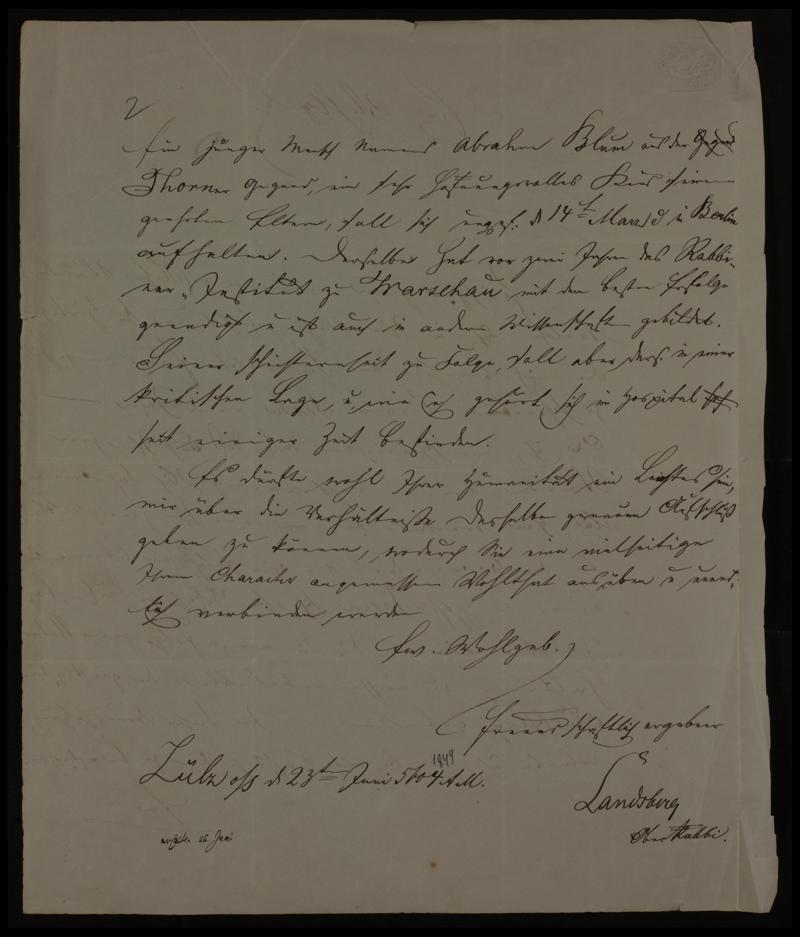 2
Ein junger Mensch Namens Abraham Blum aus der Gegend
Thorner Gegend, ein sehr hoffnungsvolles Kind seiner
geehrten Eltern, soll sich ungef. d 14t Marz d in Berlin
aufhalten. Derselbe hat vor zwei Jahren das Rabbi-
ner-Institut zu Warschau mit dem besten Erfolge
geendigt u ist auch in andern Wissenschaften gebildet.
Seiner Schüchternheit zu Folge, soll aber ders. in einer
kritischen Lage, u, wie ich gehört sich im Hospital
seit einiger Zeit befinden.
Es dürfte wohl Ihrer Humanität ein Leichtes sein,
mir über die Verhältnisse desselben genauen Aufschluß
geben zu können, wodurch Sie eine vielseitige
Ihrem Character angemessene Wohlthat ausüben u
verbinden werden
Ew. Wohlgeb.
freundschaftlich ergebener
Landsberg
Ober Rabbi.
Zülz o/s d 23t Juni 5604 A.M.
1844
26 Juni